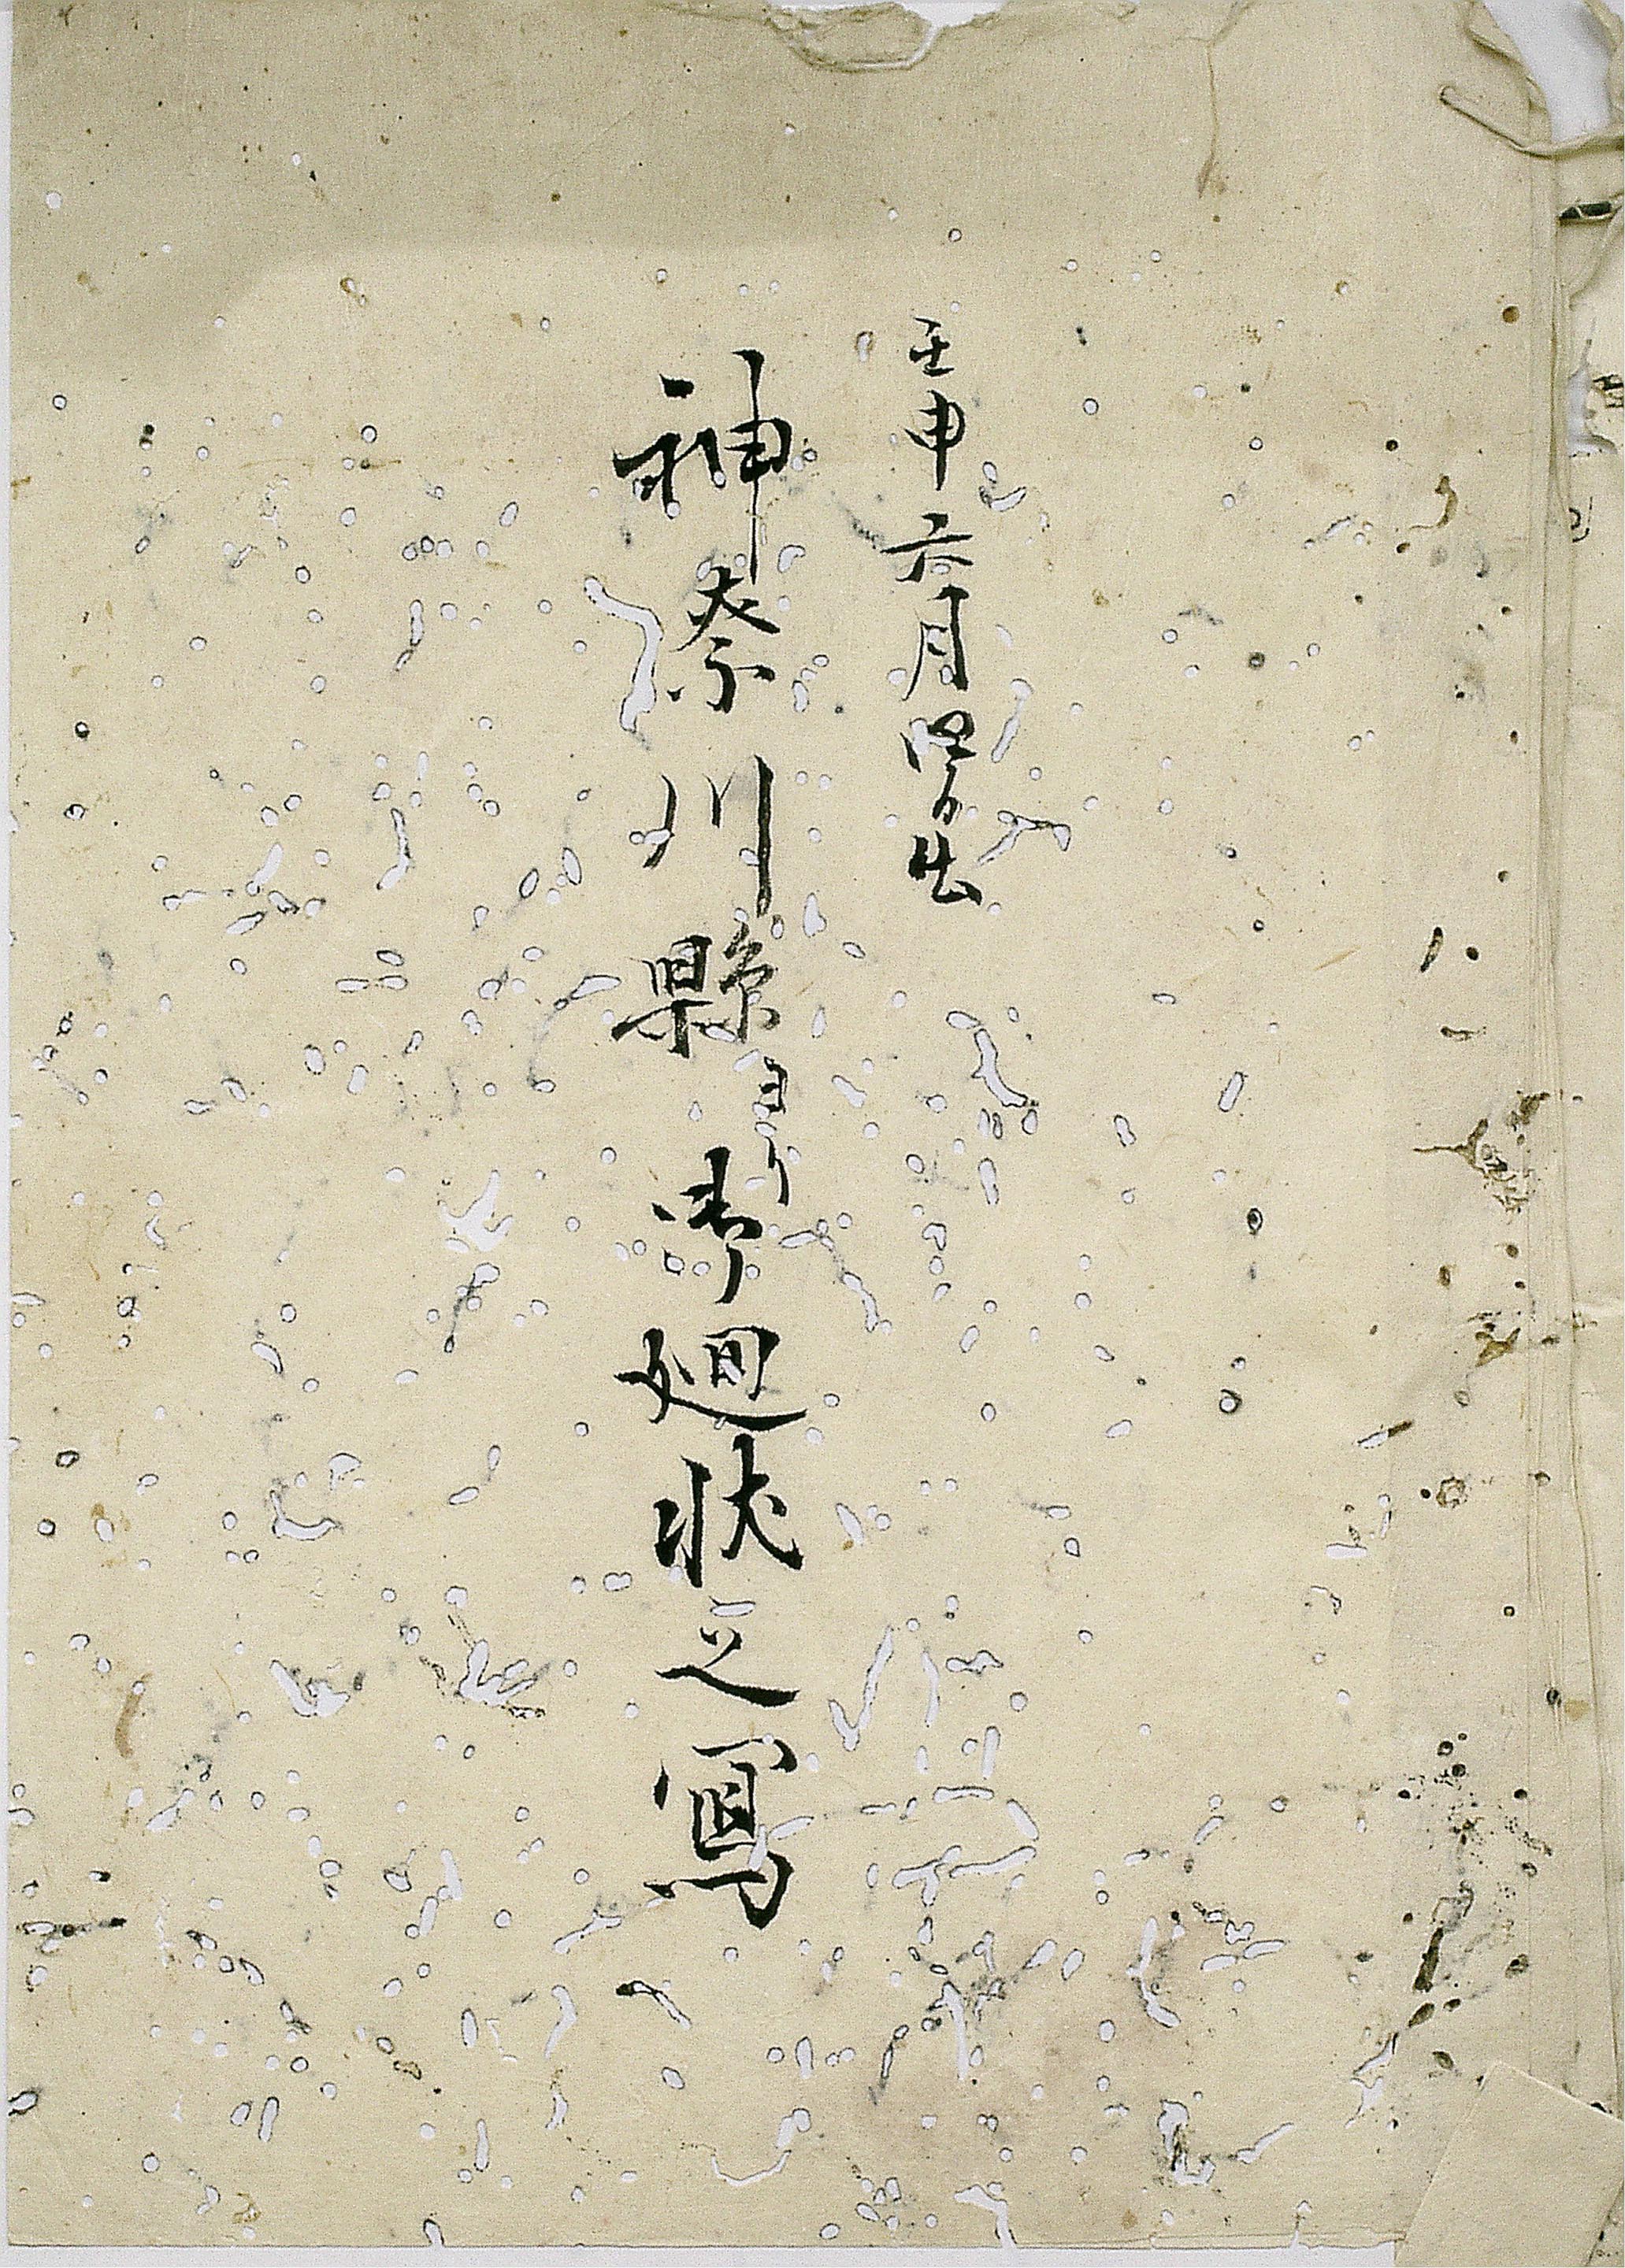 壬申六月四日出
神奈川縣ヨリ御廻状之寫